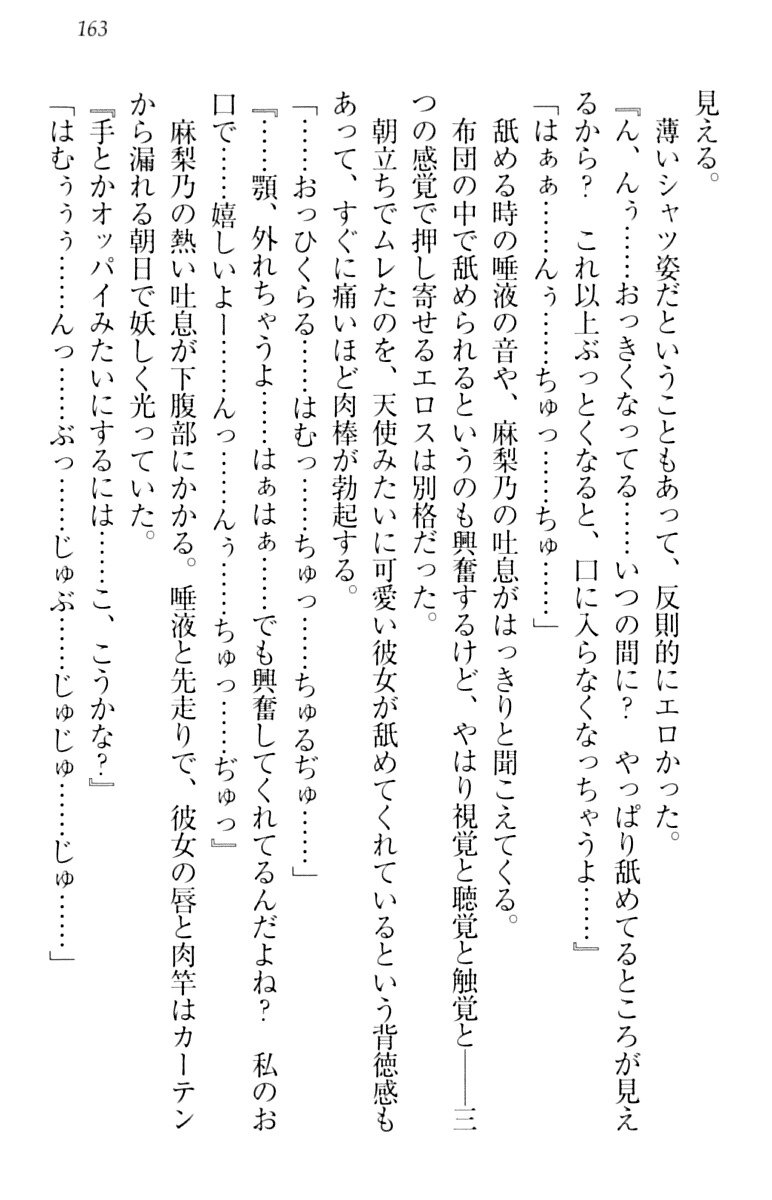 163
見える。
　薄いシャツ姿だということもあって、反則的にエロかった。
『ん、んぅ……おっきくなってる……いつの間に？　やっぱり舐めてるところが見え
るから？　これ以上ぶっとくなると、口に入らなくなっちゃうよ……』
「はぁぁ……んぅ……ちゅっ……ちゅ……」
　舐める時の唾液の音や、麻梨乃の吐息がはっきりと聞こえてくる。
　布団の中で舐められるというのも興奮するけど、やはり視覚と聴覚と触覚と――三
つの感覚で押し寄せるエロスは別格だった。
　朝立ちでムレたのを、天使みたいに可愛い彼女が舐めてくれているという背徳感も
あって、すぐに痛いほど肉棒が勃起する。
「……おっひくらる……はむっ……ちゅっ……ちゅるぢゅ……」
『……顎、外れちゃうよ……はぁはぁ……でも興奮してくれてるんだよね？　私のお
口で……嬉しいよー……んっ……んぅ……ちゅっ……ぢゅっ』
　麻梨乃の熱い吐息が下腹部にかかる。唾液と先走りで、彼女の唇と肉竿はカーテン
から漏れる朝日で妖しく光っていた。
『手とかオッパイみたいにするには……こ、こうかな？』
「はむぅぅぅ……んっ……ぶっ……じゅぶ……じゅじゅ……じゅ……」